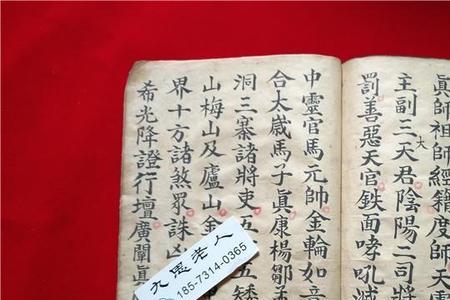 眞師祖師經籍度師天
主副三天君陰陽二司將
大
罰善惡天官鉄面哮吼滅
中靈官馬元帥金輪如
合太歲馬子眞康楊鄒
洞三寨諸將吏五五矮
山梅山及廬山金
界十方諸煞眾誅凶
希光降證行壇廣闡眞
大愚老人
185-7314-0365